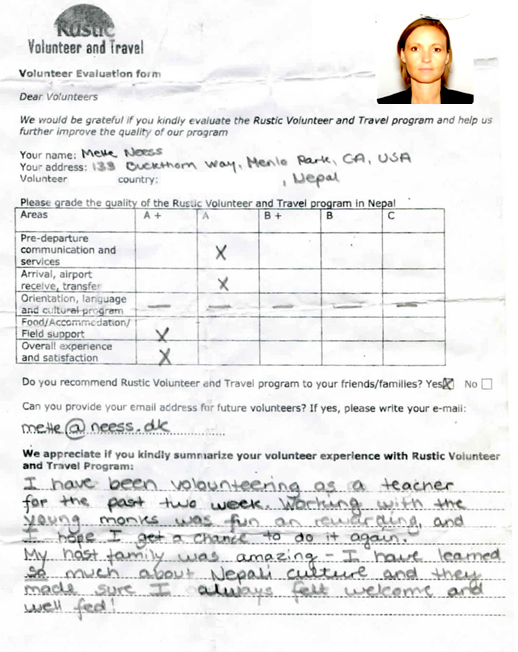 Rustic
Volunteer and Travel
Volunteer Evaluation form
Dear Volunteers
We would be grateful if you kindly evaluate the Rustic Volunteer and Travel program and help us
further improve the quality of our program
Your name: Mette Neess
Your address: 133 Buckthorn Way, Menlo Park, CA, USA
Volunteer country: , Nepal
Please grade the quality of the Rustic Volunteer and Travel program in Nepal
Areas A + A B + B C
Pre-departure
communication and
services X
Arrival, airport
receive, transfer X
Orientation, language
and cultural program — — — — —
Food/Accommodation/
Field support X
Overall experience
and satisfaction X
Do you recommend Rustic Volunteer and Travel program to your friends/families? Yes X No
Can you provide your email address for future volunteers? If yes, please write your e-mail:
mette@neess.dk
We appreciate if you kindly summarize your volunteer experience with Rustic Volunteer
and Travel Program:
I have been volounteering as a teacher
for the past two week. Working with the
young monks was fun an rewarding, and
I hope I get a chance to do it again.
My host family was amazing - I have learned
so much about Nepali culture and they
made sure I always felt welcome and
well fed!